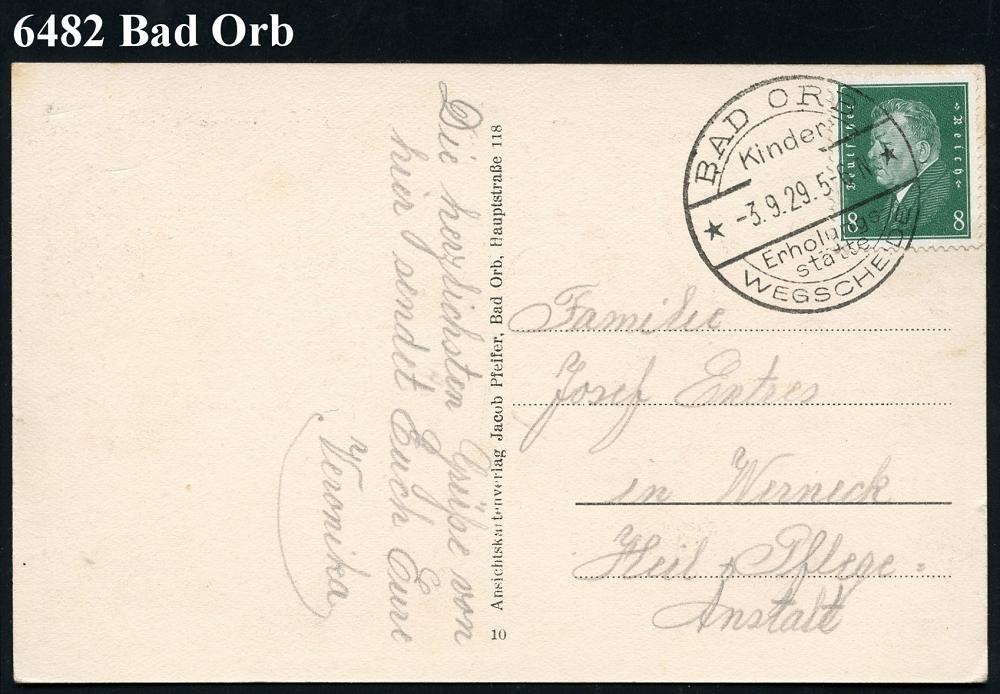 6482 Bad Orb
Die herzlichsten Grüße von
hier sendet Euch Eure
Veronika
Ansichtskartenverlag Jacob Pfeifer, Bad Orb, Hauptstraße 118
10
BAD ORB
Kinder
-3.9.29.5-6 N.
Erholungs
stätte
WEGSCHEIDE
Deutsches
Reich
8 8
Familie
Josef Entres
in Werneck
Heil u Pflege-
Anstalt